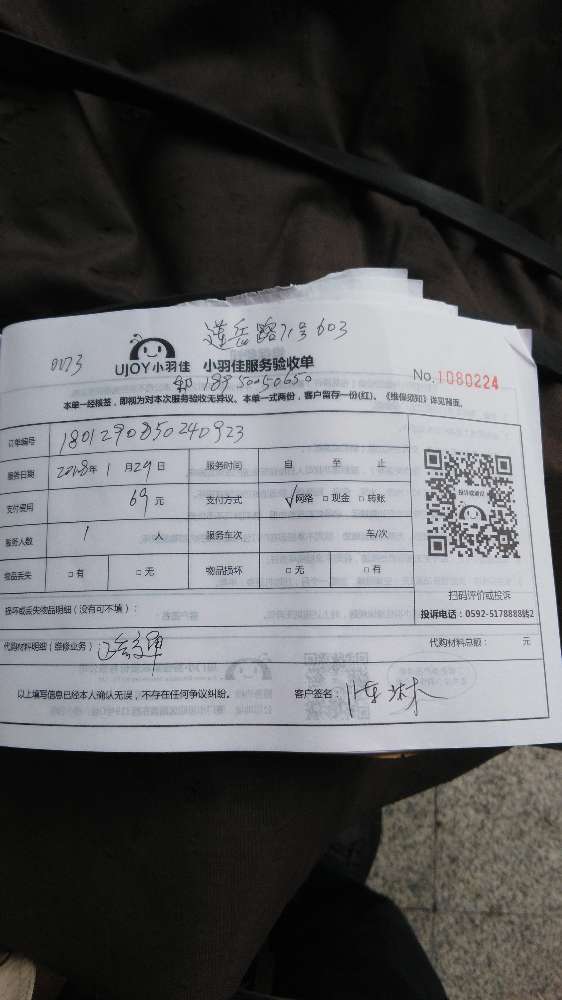 莲岳路71号603
0173 UJOY小羽佳 小羽佳服务验收单
郭 18950050650 No.1080224
本单一经核签，即视为对本次服务验收无异议、本单一式两份，客户留存一份(红)、《维保须知》详见背面。
订单编号 18012908502409 23
服务日期 2018年1月29日 服务时间 自 至 止
支付费用 69元 支付方式 √网络 □现金 □转账
服务人数 1 人 服务车次 车/次
投诉或建议
物品丢失 □有 □无 物品损坏 □无 □有
扫码评价或投诉
损坏或丢失物品明细（没有可不填）：
投诉电话：0592-5178888转2
代购材料明细（维修业务） 代购材料总额： 元
以上填写信息已经本人确认无误，不存在任何争议纠纷。 客户签名：